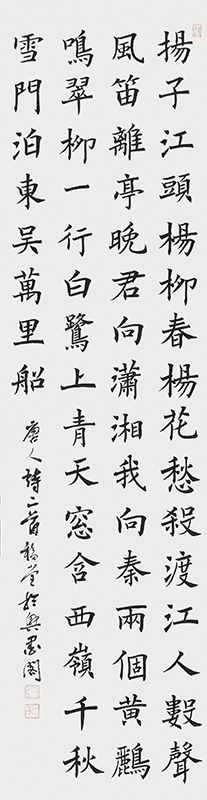 揚子江頭楊柳春楊花愁殺渡江人數聲
風笛離亭晚君向瀟湘我向秦兩個黃鸝
鳴翠柳一行白鷺上青天窓含西嶺千秋
雪門泊東吳萬里船
唐人詩二首堂於墨閣